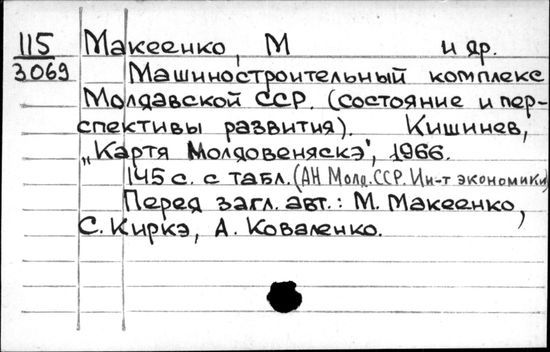 115 Макеенко, М и др.
3069 Машиностроительный комплекс
Молдавской ССР. (состояние и пер-
спективы развития). Кишинев,
„Картя Молдовеняскэ", 1966.
145 с. с табл. (АН Молд. ССР. Ин-т экономики)
Перед загл. авт.: М. Макеенко,
С. Киркэ, А. Коваленко.